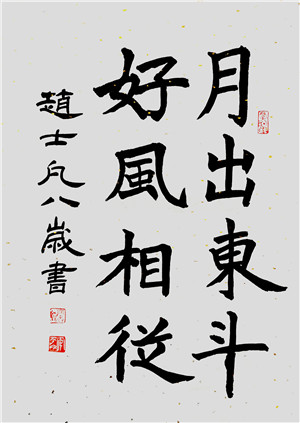 月出東斗
好風相從
趙士凡八歲書